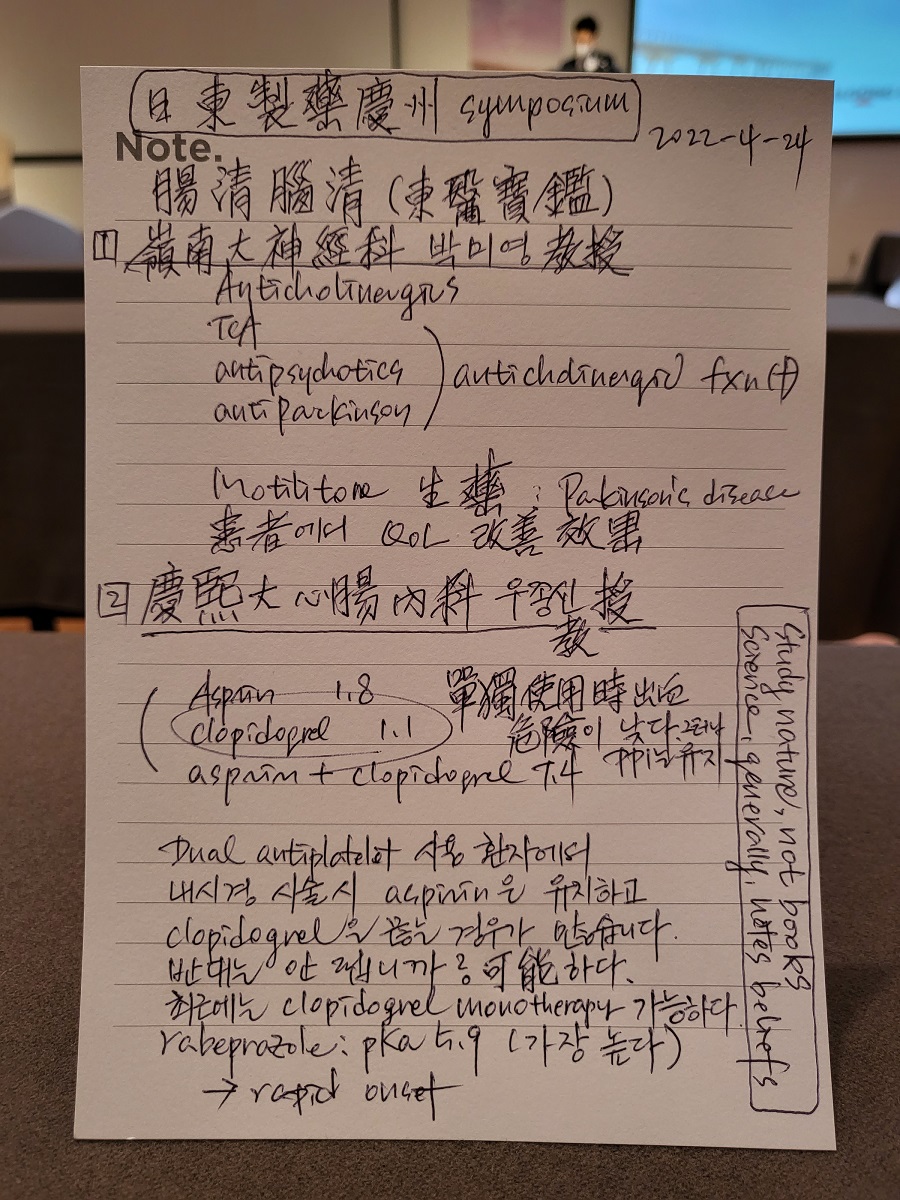 日東製藥慶州 symposium
2022-4-24
Note.
腸清腦清 (東醫寶鑑)
1 嶺南大神經科 박미영 教授
Anticholinergics
TCA
antipsychotics
antiparkinson
anticholinergic fxn (+)
Motilitone 生藥 : Parkinson's disease
患者에서 QoL 改善效果
2 慶熙大 心腸內科 우정신 教授
Aspirin 1.8
clopidogrel 1.1
aspirin + clopidogrel 7.4
單獨使用時 出血
危險이 낮다. 그러나
PPI는 유지
Dual antiplatelet 사용 환자에서
내시경 시술시 aspirin은 유지하고
clopidogrel을 끊는 경우가 많습니다.
반대는 안 됩니까? 可能하다.
최근에는 clopidogrel monotherapy 가능하다.
rabeprazole: pKa 5.9 (가장 높다)
→ rapid onset
Study nature, not books
Science, generally, notes beliefs